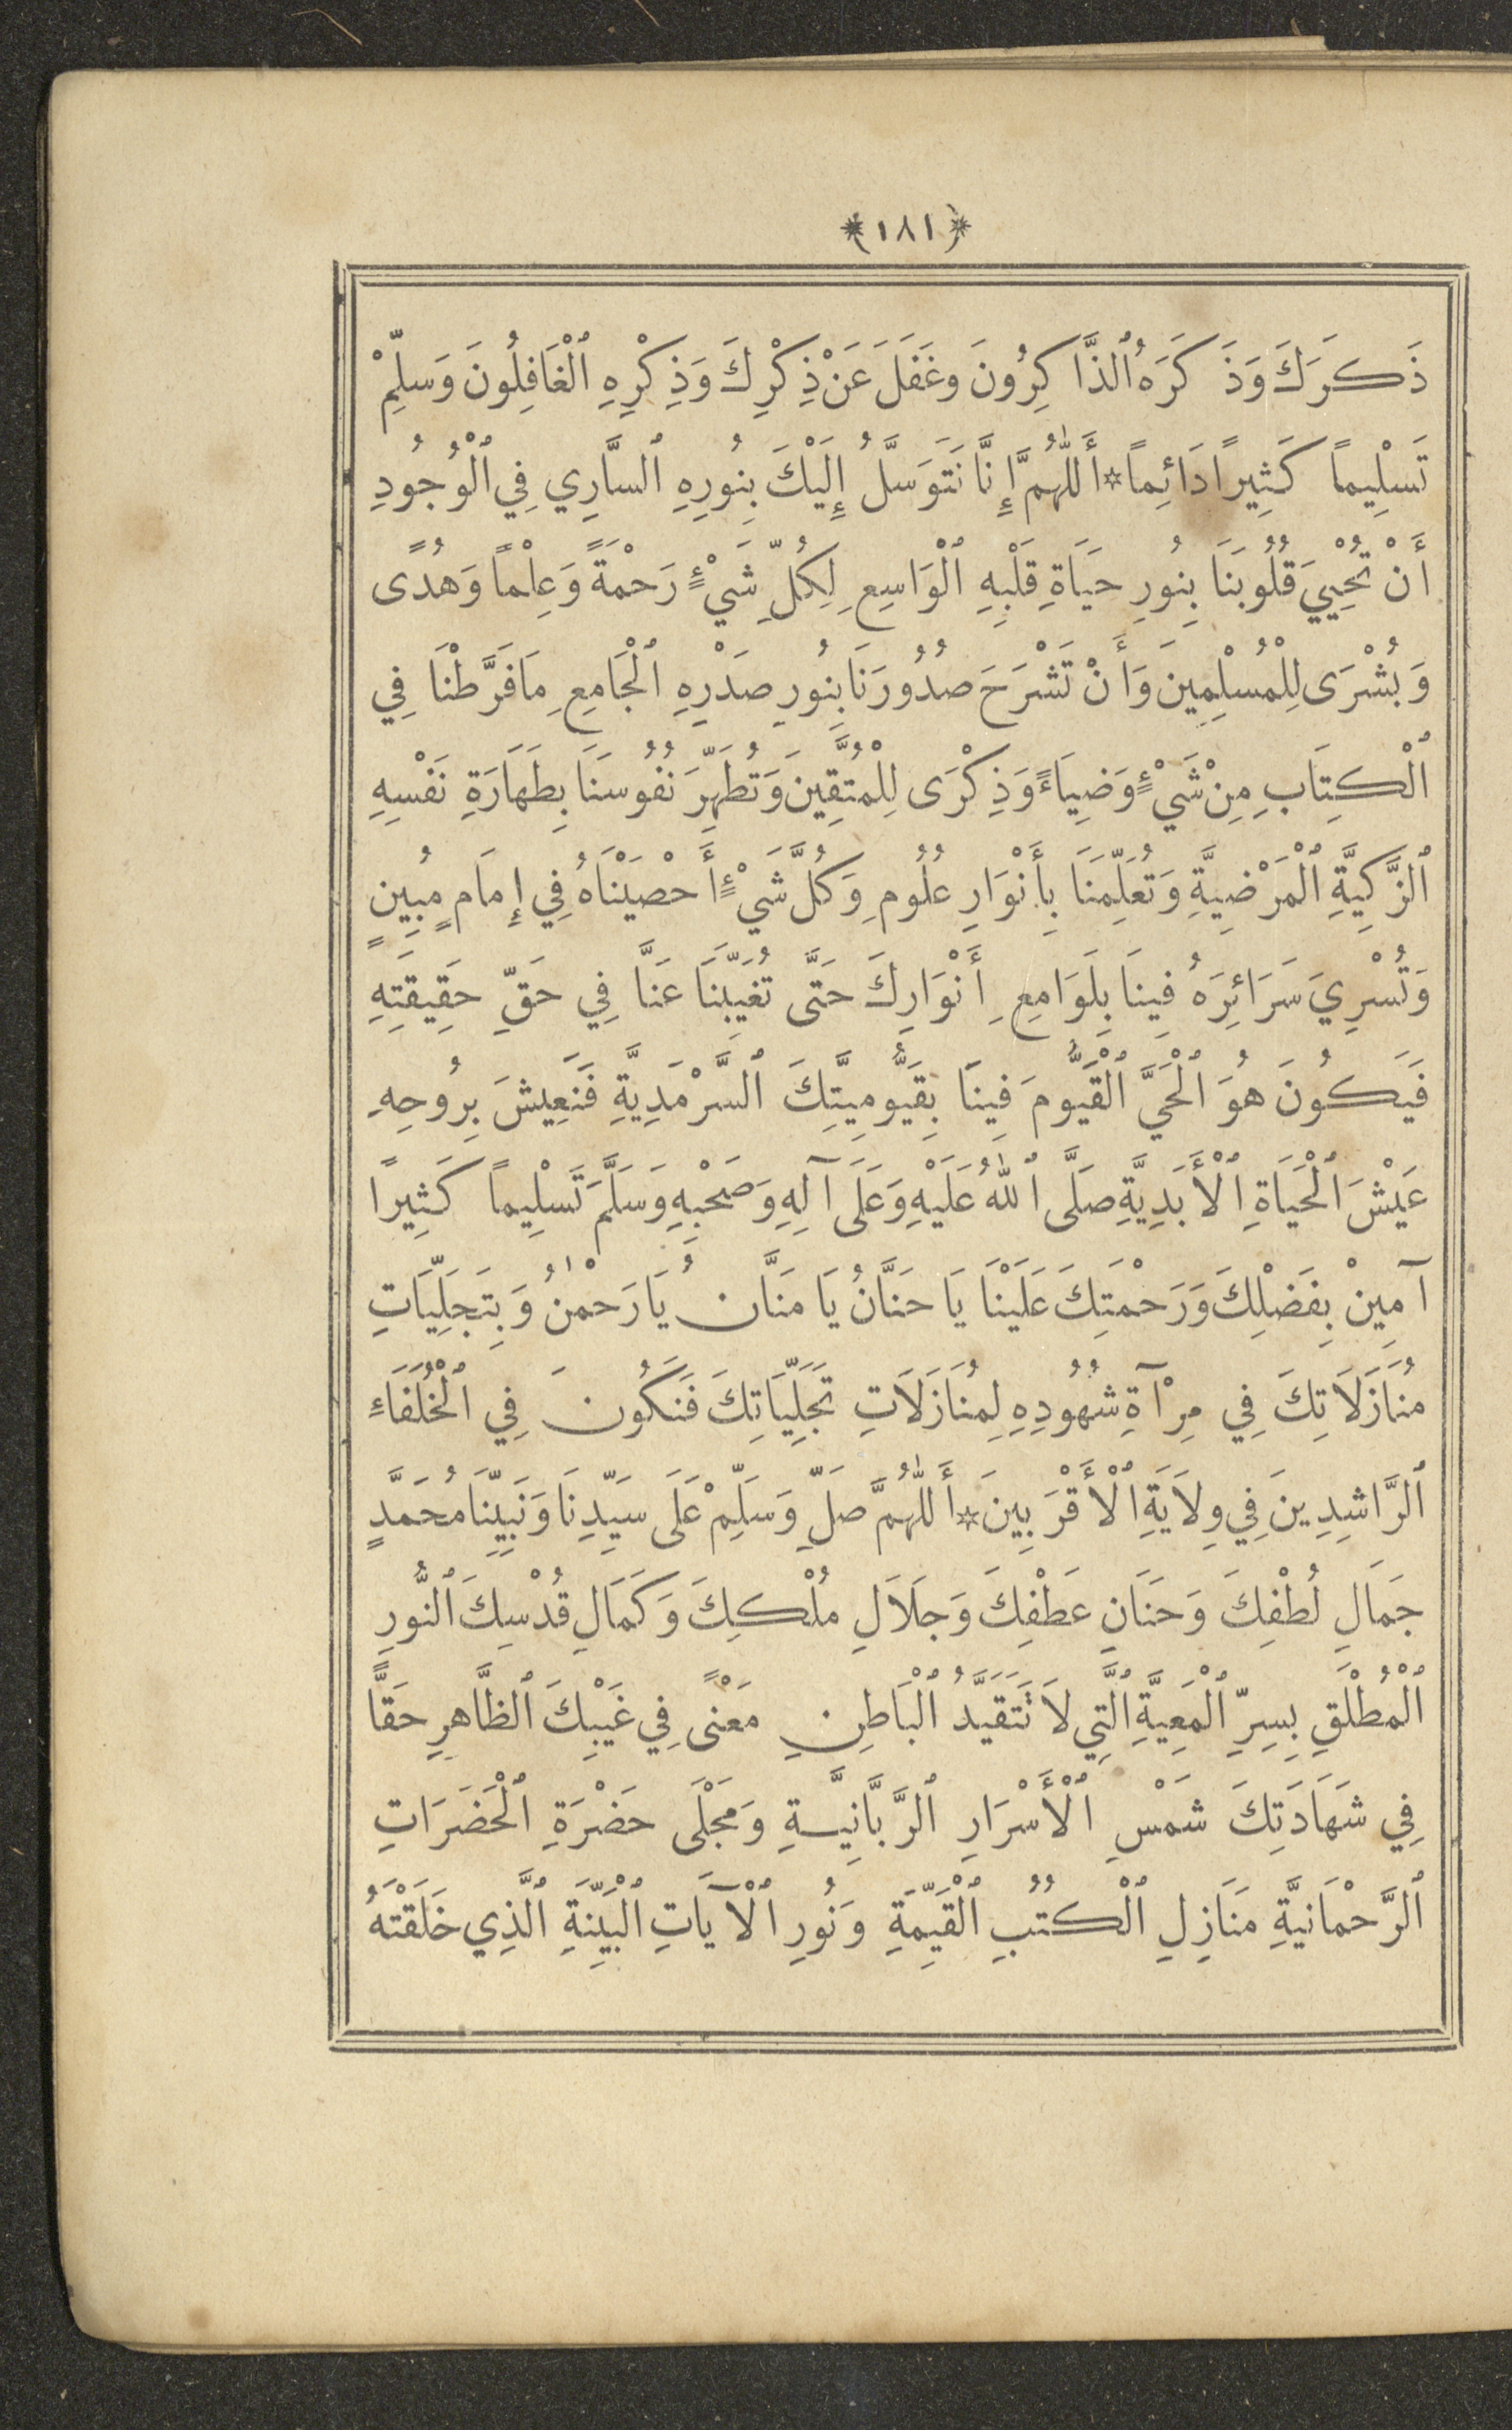 ﴿١٨١﴾
ذَكَرَكَ وَذَكَرَهُ ٱلذَّاكِرُونَ وغَفَلَ عَنْ ذِكْرِكَ وَذِكْرِهِ ٱلْغَافِلُونَ وَسَلِّمْ
تَسْلِيماً كَثِيراً دَائِماً * أَللّٰهُمَّ إِنَّا نَتَوَسَّلُ إِلَيْكَ بِنُورِهِ ٱلسَّارِي فِي ٱلْوُجُودِ
أَنْ تُحْيِيَ قُلُوبَنَا بِنُورِ حَيَاةِ قَلْبِهِ ٱلْوَاسِعِ لِكُلِّ شَيْءٍ رَحْمَةً وَعِلْماً وَهُدًى
وَبُشْرَى لِلْمُسْلِمِينَ وَأَنْ تَشْرَحَ صُدُورَنَا بِنُورِ صَدْرِهِ ٱلْجَامِعِ مَا فَرَّطْنَا فِي
ٱلْكِتَابِ مِنْ شَيْءٍ وَضِيَاءً وَذِكْرَى لِلْمُتَّقِينَ وَتُطَهِّرَ نُفُوسَنَا بِطَهَارَةِ نَفْسِهِ
ٱلزَّكِيَّةِ ٱلْمَرْضِيَّةِ وَتُعَلِّمَنَا بِأَنْوَارِ عُلُومِ وَكُلَّ شَيْءٍ أَحْصَيْنَاهُ فِي إِمَامٍ مُبِينٍ
وَتُسْرِيَ سَرَائِرَهُ فِينَا بِلَوَامِعِ أَنْوَارِكَ حَتَّى تُغَيِّبَنَا عَنَّا فِي حَقِّ حَقِيقَتِهِ
فَيَكُونَ هُوَ ٱلْحَيَّ ٱلْقَيُّومَ فِينَا بِقَيُّومِيَّتِكَ ٱلسَّرْمَدِيَّةِ فَنَعِيشَ بِرُوحِهِ
عَيْشَ ٱلْحَيَاةِ ٱلْأَبَدِيَّةِ صَلَّى ٱللّٰهُ عَلَيْهِ وَعَلَى آلِهِ وَصَحْبِهِ وَسَلَّمَ تَسْلِيماً كَثِيراً
آمِينْ بِفَضْلِكَ وَرَحْمَتِكَ عَلَيْنَا يَا حَنَّانُ يَا مَنَّانُ يَا رَحْمٰنُ وَبِتَجَلِّيَاتِ
مُنَازَلَاتِكَ فِي مِرْآةِ شُهُودِهِ لِمُنَازَلَاتِ تَجَلِّيَاتِكَ فَنَكُونَ فِي ٱلْخُلَفَاءِ
ٱلرَّاشِدِينَ فِي وِلَايَةِ ٱلْأَقْرَبِينَ * أَللّٰهُمَّ صَلِّ وَسَلِّمْ عَلَى سَيِّدِنَا وَنَبِيِّنَا مُحَمَّدٍ
جَمَالِ لُطْفِكَ وَحَنَانِ عَطْفِكَ وَجَلَالِ مُلْكِكَ وَكَمَالِ قُدْسِكَ ٱلنُّورِ
ٱلْمُطْلَقِ بِسِرِّ ٱلْمَعِيَّةِ ٱلَّتِي لَا تَتَقَيَّدُ ٱلْبَاطِنِ مَعْنًى فِي غَيْبِكَ ٱلظَّاهِرِ حَقًّا
فِي شَهَادَتِكَ شَمْسِ ٱلْأَسْرَارِ ٱلرَّبَّانِيَّةِ وَمَجْلَى حَضْرَةِ ٱلْحَضَرَاتِ
ٱلرَّحْمَانِيَّةِ مَنَازِلِ ٱلْكُتُبِ ٱلْقَيِّمَةِ وَنُورِ ٱلْآيَاتِ ٱلْبَيِّنَةِ ٱلَّذِي خَلَقْتَهُ